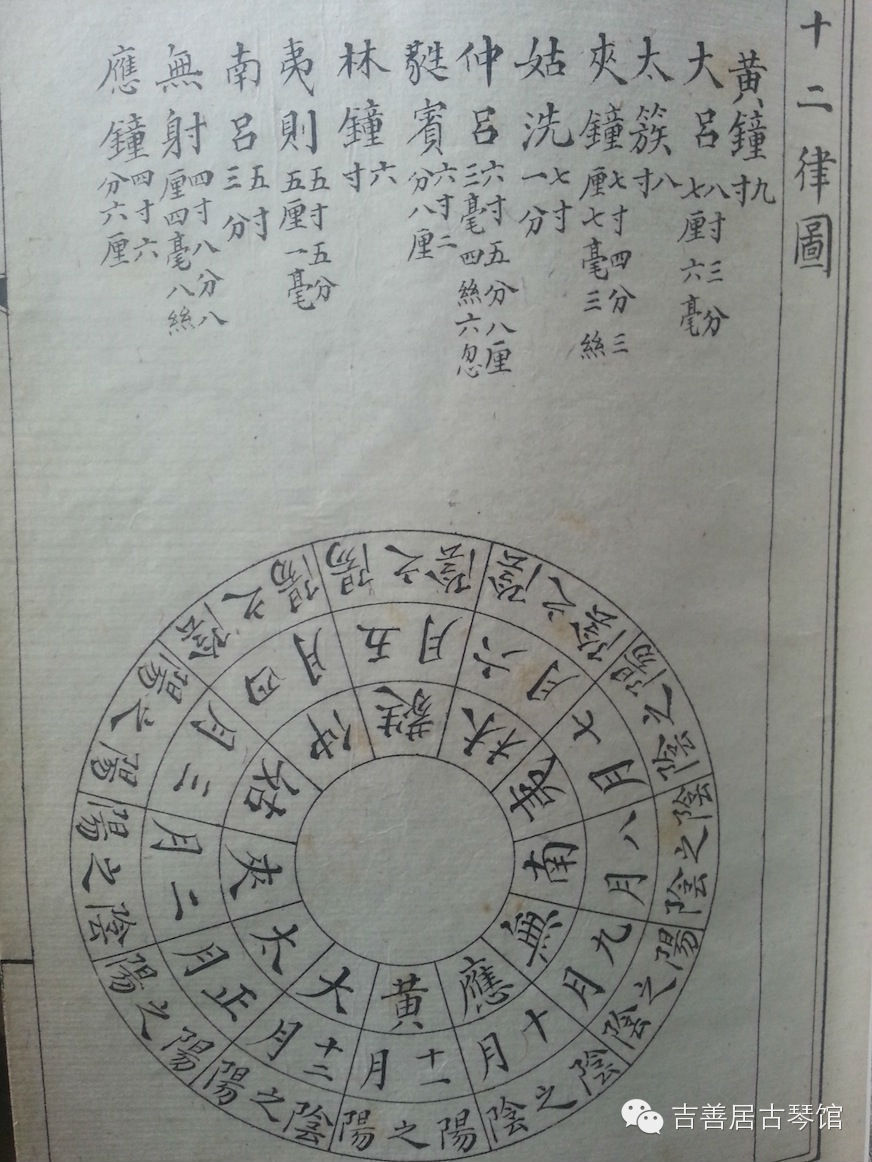 十二律圖
黃鐘九寸
大呂八寸三分七厘六毫
太簇八寸
夾鐘七寸四分三厘七毫三絲
姑洗七寸一分
仲呂六寸五分八厘三毫四絲六忽
蕤賓六寸二分八厘
林鐘六寸
夷則五寸五分五厘一毫
南呂五寸三分
無射四寸八分八厘四毫八絲
應鐘四寸六分六厘
黃
十一月
陽之陽
大
十二月
陰之陽
太
正月
陽之陽
夾
二月
陰之陽
姑
三月
陽之陽
仲
四月
陰之陽
蕤
五月
陽之陰
林
六月
陰之陰
夷
七月
陽之陰
南
八月
陰之陰
無
九月
陽之陰
應
十月
陰之陰
吉善居古琴馆